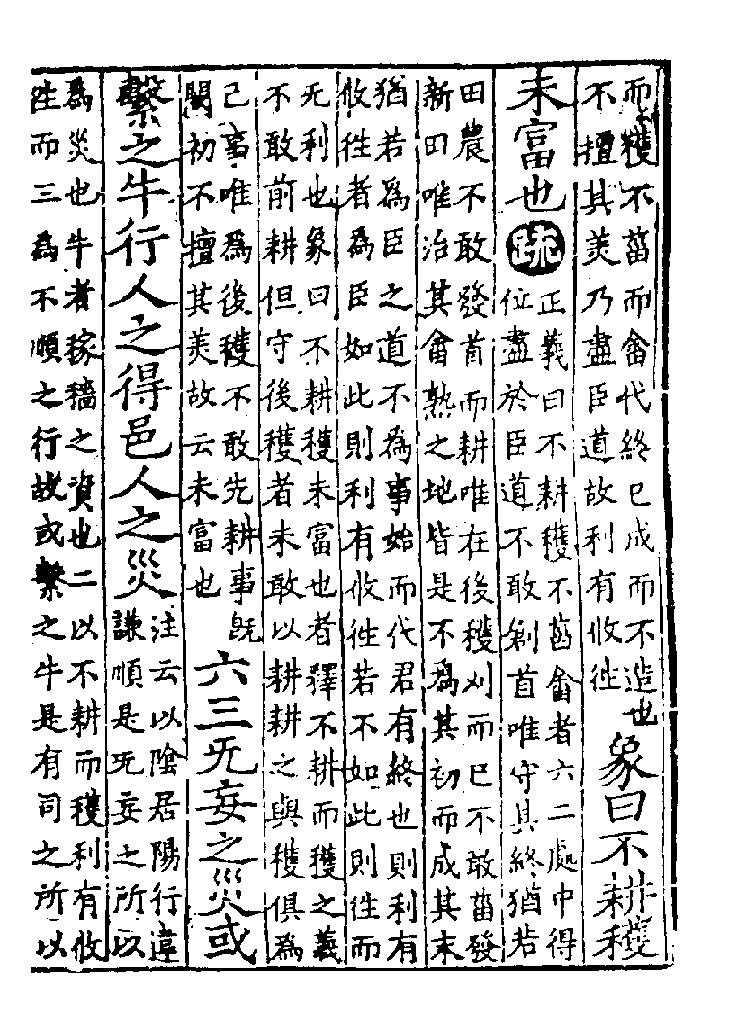 而穫不菑而畬代終已成而不造也
不擅其美乃盡臣道故利有攸徃
象曰不耕穫
未富也疏
正義曰不耕穫不菑畬者六二處中得
位盡於臣道不敢創首唯守其終猶若
田農不敢發首而耕唯在後穫刈而已不敢菑發
新田唯治其畬熟之地皆是不爲其初而成其末
猶若爲臣之道不爲事始而代君有終也則利有
攸徃者爲臣如此則利有攸徃若不如此則徃而
无利也象曰不耕穫未富也者釋不耕而穫之義
不敢前耕但守後穫者未敢以耕耕之與穫俱爲
己事唯爲後穫不敢先耕事旣
闕初不擅其美故云未富也
六三无妄之災或
繫之牛行人之得邑人之災
注云以陰居陽行違
謙順是无妄之所以
爲災也牛者稼穡之資也二以不耕而穫利有攸
徃而三爲不順之行故或繫之牛是有司之所以